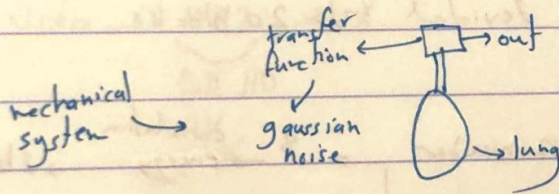 transfer
function
out
mechanical
system
gaussian
noise
lung